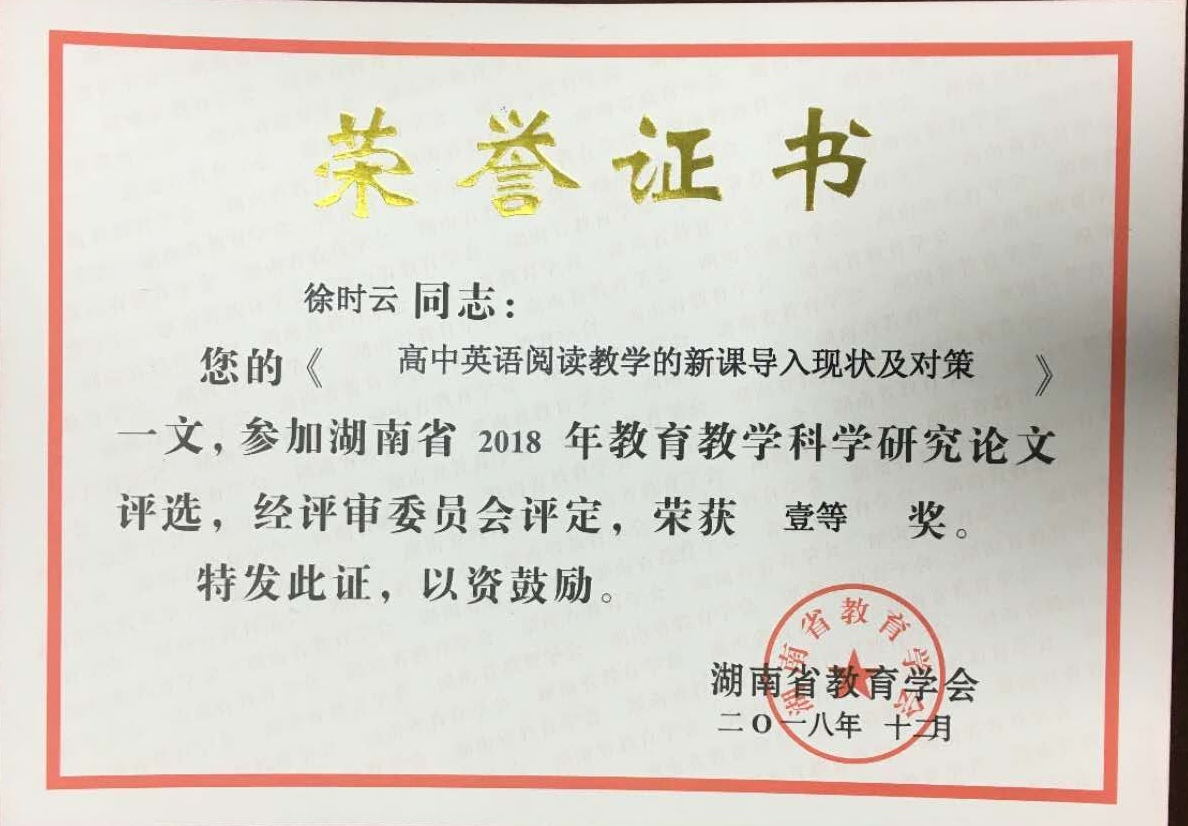 荣誉证书
徐时云 同志：
您的《 高中英语阅读教学的新课导入现状及对策 》
一文，参加湖南省 2018 年教育教学科学研究论文
评选，经评审委员会评定，荣获 壹等 奖。
特发此证，以资鼓励。
湖南省教育学会
湖南省教育学会
二O一八年 十二月